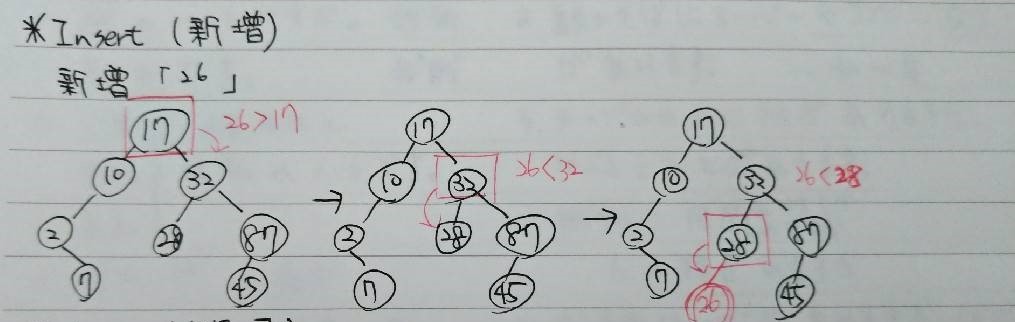 *Insert (新增)
新增「26」
17 26>17
10 32
2 28 87
7 45
→
17
10 32 26<32
2 28 87
7 45
→
17
10 32 26<28
2 28 87
7 26 45